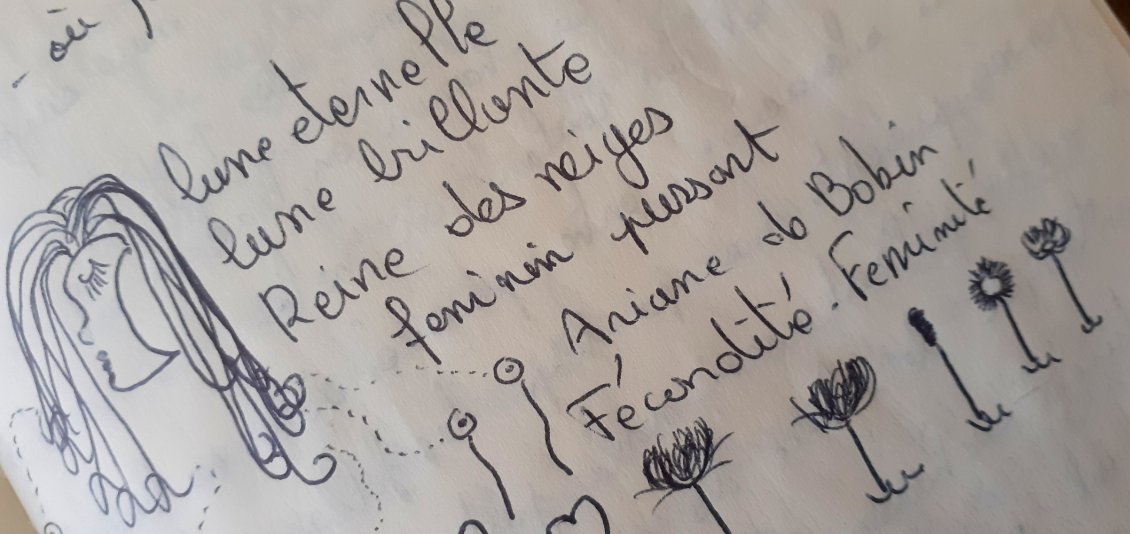 - où
lune eternelle
lune brillante
Reine des neiges
feminin puissant
Ariane de Bobin
Fécondité. Feminité